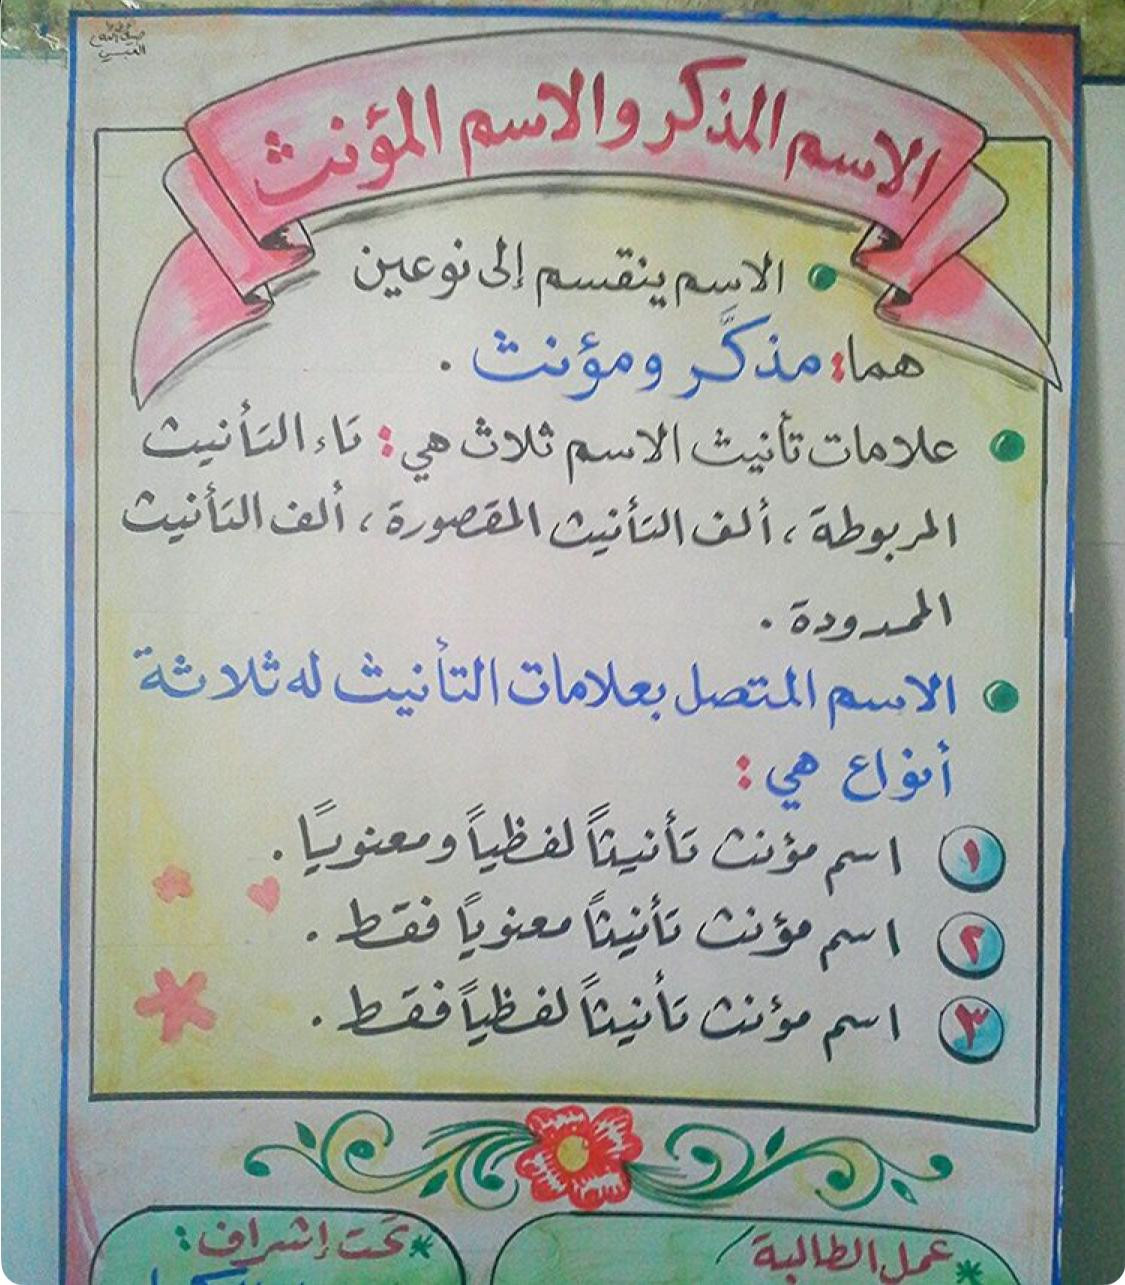 الاسم المذكر والاسم المؤنث
الاسم ينقسم إلى نوعين
هما: مذكَّر ومؤنث .
علامات تأنيث الاسم ثلاث هي: تاء التأنيث
المربوطة ، ألف التأنيث المقصورة ، ألف التأنيث
الممدودة .
الاسم المتصل بعلامات التأنيث له ثلاثة
أنواع هي :
١ اسم مؤنث تأنيثاً لفظياً ومعنويًا .
٢ اسم مؤنث تأنيثاً معنويًا فقط .
٣ اسم مؤنث تأنيثاً لفظياً فقط .
* عمل الطالبة /
* تحت إشراف :